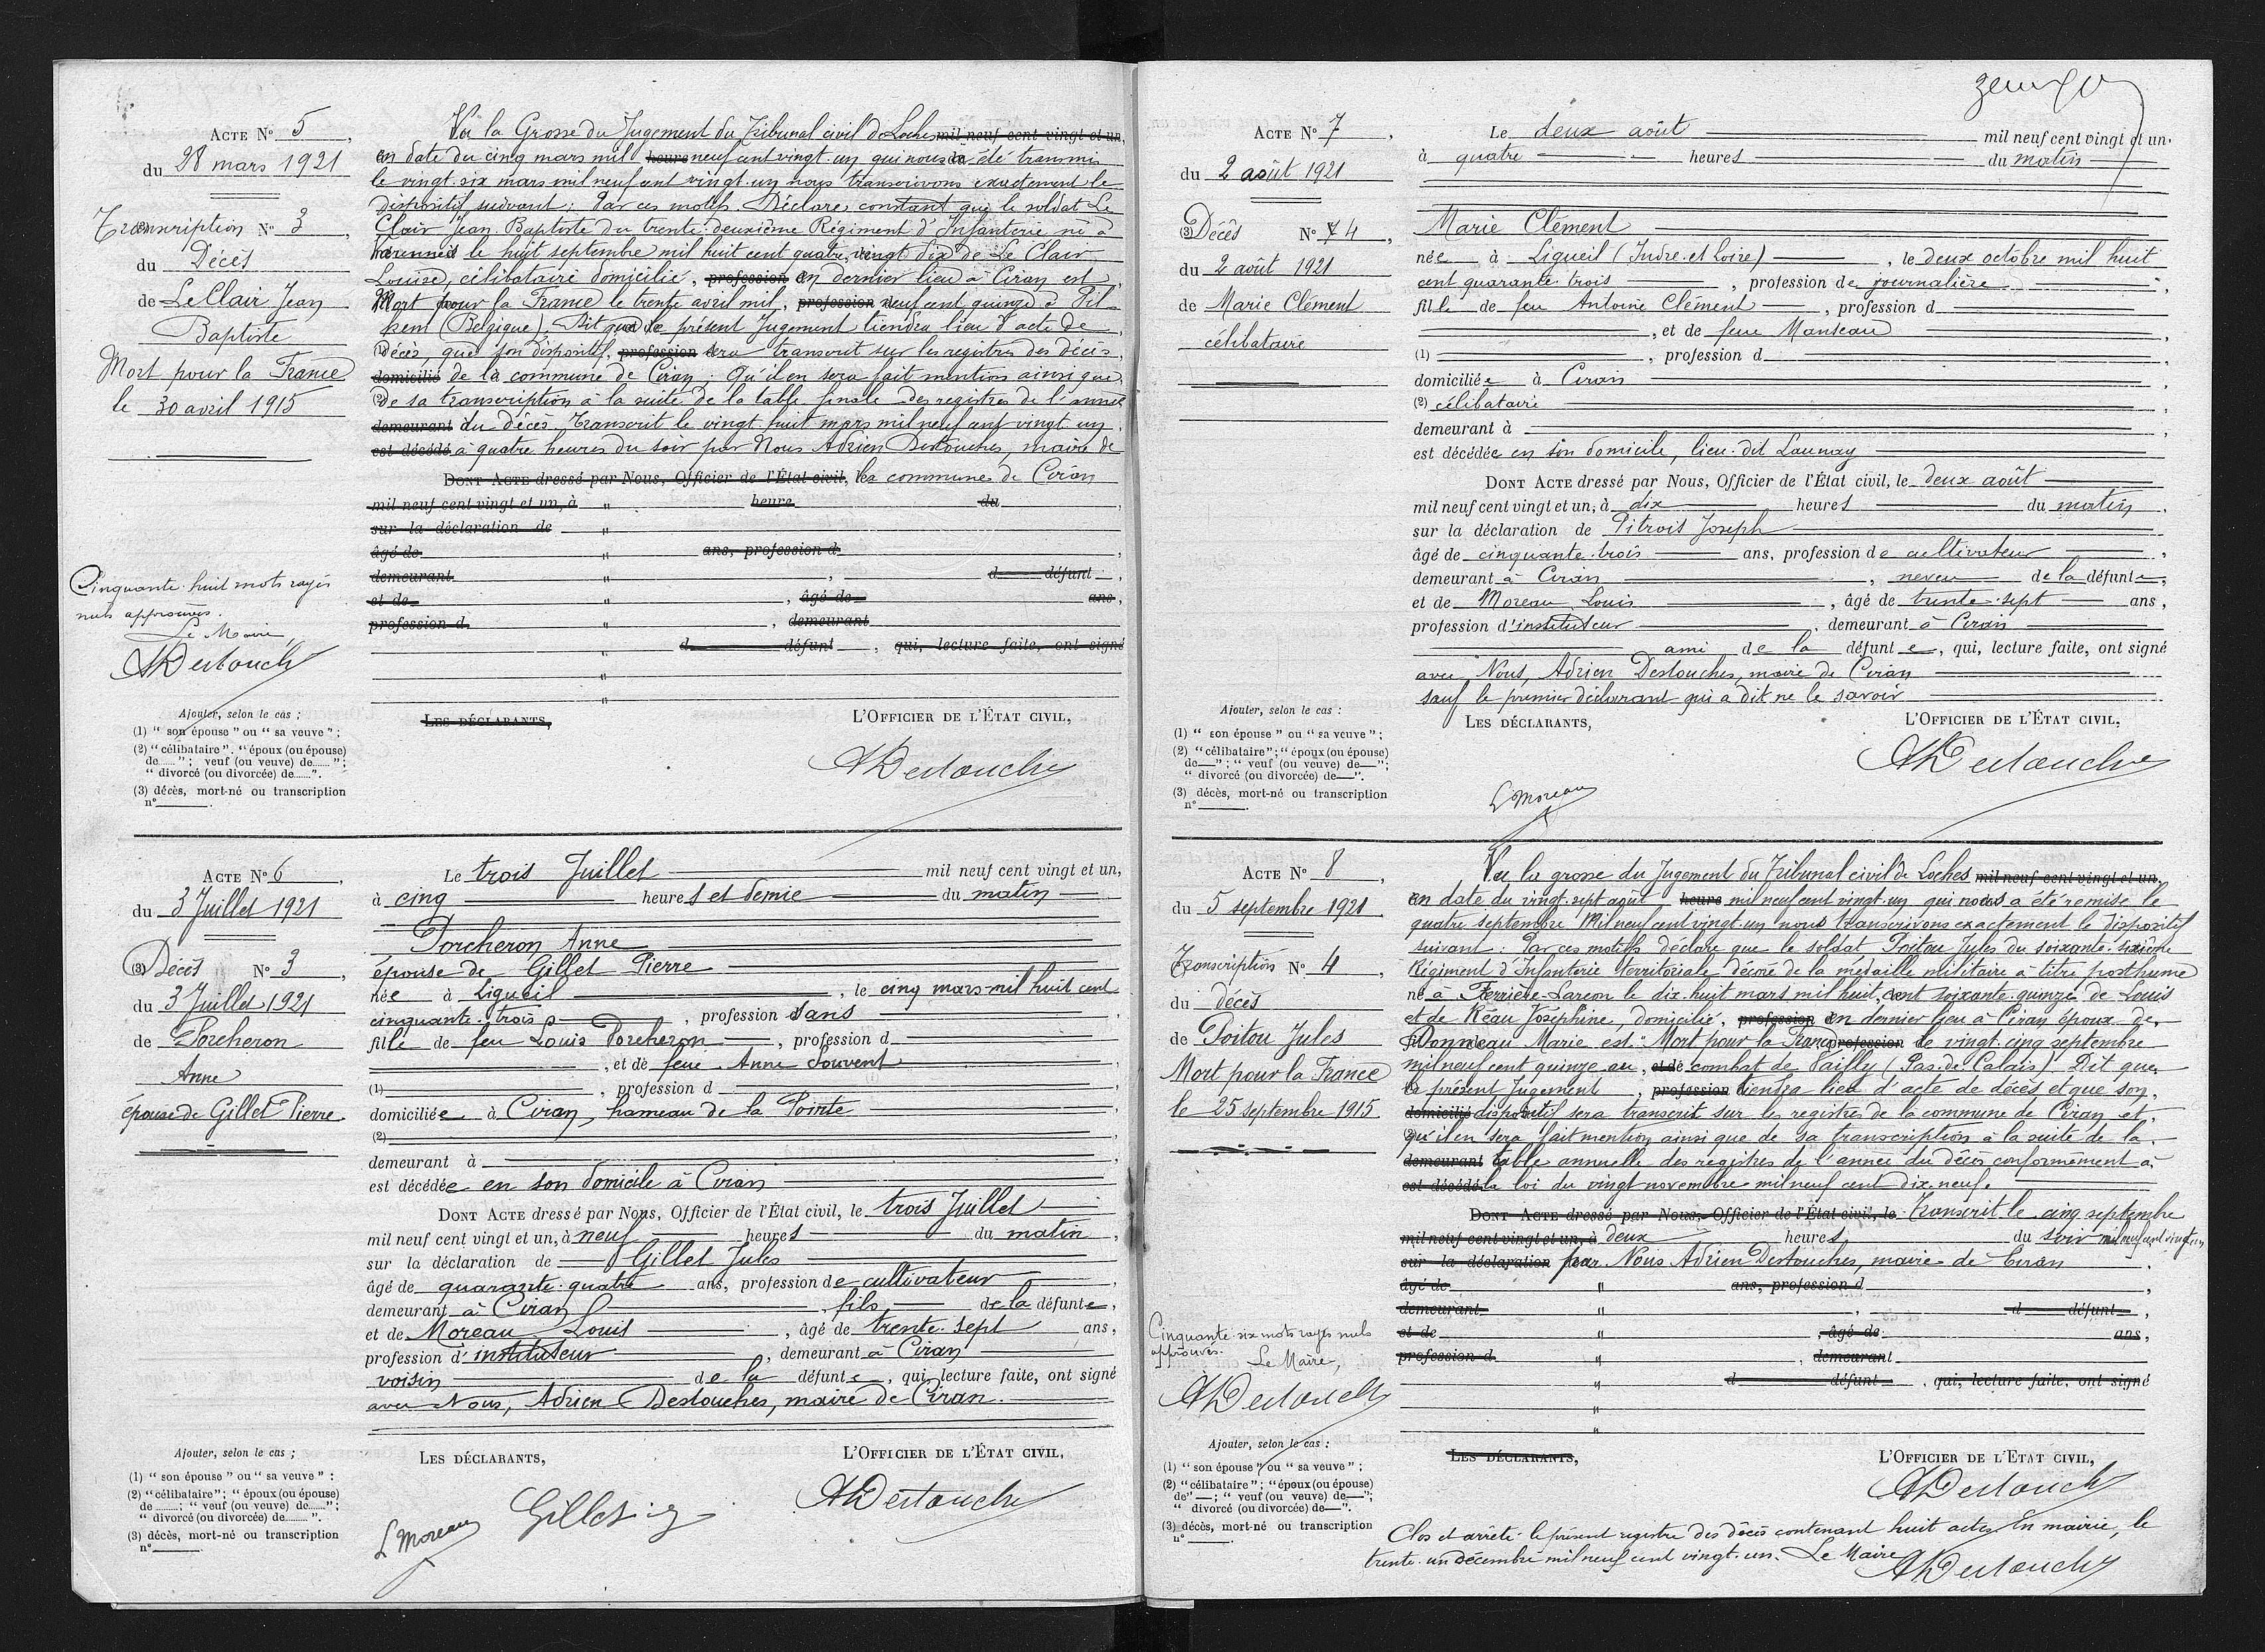 Acte N° 5,
du 28 mars 1921
Transcription N° 3,
du Décès
de Le Clair Jean
Baptiste
Mort pour la France
le 30 avril 1915
Cinquante-huit mots rayés
nuls approuvés.
Le Maire,
ADestouches
Ajouter, selon le cas :
(1) " son épouse " ou " sa veuve " ;
(2) " célibataire ". " époux (ou épouse)
de...... " ; veuf (ou veuve) de...... " ;
" divorcé (ou divorcée) de...... ".
(3) décès, mort-né ou transcription
n° ______.
Vu la Grosse du Jugement du Tribunal civil de Loches mil neuf cent vingt et un,
en date du cinq mars mil heure neuf cent vingt-un qui nous a été transmis
le vingt-six mars mil neuf cent vingt-un nous transcrivons exactement le
dispositif suivant : Par ces motifs. Déclare constant que le soldat Le
Clair Jean Baptiste du trente-deuxième Régiment d'Infanterie né à
Varennes le huit septembre mil huit cent quatre-vingt-dix de Le Clair
Louise, célibataire domicilié, profession en dernier lieu à Ciran est
Mort pour la France le trente avril mil, profession neuf cent quinze à Pil-
kem (Belgique). Dit que le présent Jugement tiendra lieu d'acte de
(1) décès, que son dispositif, profession sera transcrit sur les registres des décès
domicilié de la commune de Ciran. Qu'il en sera fait mention ainsi que
(2) de sa transcription à la suite de la table finale des registres de l'année
demeurant du décès. Transcrit le vingt-huit mars mil neuf cent vingt un
est décédé à quatre heures du soir par Nous Adrien Destouches, maire de
Dont Acte dressé par Nous, Officier de l'État civil, le la commune de Ciran
mil neuf cent vingt et un, à " heure du
sur la déclaration de "
âgé de " ans, profession d
demeurant " , d défunt ,
et de " , âgé de ans,
profession d " , demeurant
" d défunt , qui, lecture faite, ont signé
"
"
Les déclarants, L'Officier de l'État civil,
ADestouches
Acte N° 6,
du 3 Juillet 1921
(3) Décès N° 3,
du 3 Juillet 1921
de Porcheron
Anne
épouse de Gillet Pierre
Ajouter, selon le cas ;
(1) " son épouse " ou " sa veuve " :
(2) " célibataire " ; " époux (ou épouse)
de ...... ; " veuf (ou veuve) de...... " ;
" divorcé (ou divorcée) de...... ".
(3) décès, mort-né ou transcription
n° ______.
Le trois Juillet mil neuf cent vingt et un,
à cinq heures et demie du matin
Porcheron Anne
épouse de Gillet Pierre
née à Ligueil, le cinq mars mil huit cent
cinquante-trois, profession sans
fille de feu Louis Porcheron, profession d
, et de feue Anne Souvent
(1) , profession d
domiciliée à Ciran, hameau de la Pointe
(2)
demeurant à
est décédée en son domicile à Ciran
Dont Acte dressé par Nous, Officier de l'État civil, le trois Juillet
mil neuf cent vingt et un, à neuf heures du matin
sur la déclaration de Gillet Jules
âgé de quarante-quatre ans, profession de cultivateur
demeurant à Ciran, fils de la défunte,
et de Moreau Louis, âgé de trente-sept ans,
profession d'instituteur, demeurant à Ciran
voisin de la défunte, qui, lecture faite, ont signé
avec Nous, Adrien Destouches, maire de Ciran.
Les déclarants, L'Officier de l'État civil,
L Moreau Gillet ADestouches
Acte N° 7,
du 2 août 1921
(3) Décès N° 4,
du 2 août 1921
de Marie Clément
célibataire
Ajouter, selon le cas :
(1) " son épouse " ou " sa veuve " ;
(2) " célibataire " ; " époux (ou épouse)
de— " ; " veuf (ou veuve) de— " ;
" divorcé (ou divorcée) de— ".
(3) décès, mort-né ou transcription
n° ______.
Le deux août mil neuf cent vingt et un,
à quatre heures du matin
Marie Clément
née à Ligueil (Indre-et-Loire), le deux octobre mil huit
cent quarante-trois, profession de journalière
fille de feu Antoine Clément, profession d
, et de feue Manseau
(1) , profession d
domiciliée à Ciran
(2) célibataire
demeurant à
est décédée en son domicile, lieu-dit Launay
Dont Acte dressé par Nous, Officier de l'État civil, le deux août
mil neuf cent vingt et un, à dix heures du matin
sur la déclaration de Pitrois Joseph
âgé de cinquante-trois ans, profession de cultivateur
demeurant à Ciran, neveu de la défunte,
et de Moreau Louis, âgé de trente-sept ans,
profession d'instituteur, demeurant à Ciran
ami de la défunte, qui, lecture faite, ont signé
avec Nous, Adrien Destouches, maire de Ciran
sauf le premier déclarant qui a dit ne le savoir
Les déclarants, L'Officier de l'État civil,
ADestouches
L Moreau
Acte N° 8,
du 5 septembre 1921
Transcription N° 4,
du décès
de Poitou Jules
Mort pour la France
le 25 septembre 1915
Cinquante-six mots rayés nuls
approuvés.
Le Maire,
ADestouches
Ajouter, selon le cas :
(1) " son épouse " ou " sa veuve " ;
(2) " célibataire " ; " époux (ou épouse)
de" — ; " veuf (ou veuve) de— " ;
" divorcé (ou divorcée) de— ".
(3) décès, mort-né ou transcription
n° ______.
Vu la grosse du Jugement du Tribunal civil de Loches mil neuf cent vingt et un,
en date du vingt-sept août heure mil neuf cent vingt-un qui nous a été remise le
quatre septembre mil neuf cent vingt-un nous transcrivons exactement le dispositif
suivant : Par ces motifs déclare que le soldat Poitou Jules du soixante-sixième
Régiment d'Infanterie territoriale, décoré de la médaille militaire à titre posthume
né à Ferrière-Larçon le dix-huit mars mil huit cent soixante-quinze de Louis
et de Réau Joséphine, domicilié, profession en dernier lieu à Ciran époux de
Donneau Marie est "Mort pour la France profession le vingt-cinq septembre
mil neuf cent quinze au, et de combat de Vailly (Pas-de-Calais). Dit que
le présent Jugement, profession tiendra lieu d'acte de décès et que son
domicilié dispositif sera transcrit sur les registres de la commune de Ciran et
qu'il en sera fait mention ainsi que de sa transcription à la suite de la
demeurant table annuelle des registres de l'année du décès conformément à
est décédé la loi du vingt novembre mil neuf cent dix-neuf.
Dont Acte dressé par Nous, Officier de l'État civil, le Transcrit le cinq septembre
mil neuf cent vingt et un, à deux heures du soir mil neuf cent vingt-un
sur la déclaration par Nous Adrien Destouches, maire de Ciran
âgé de " ans, profession d
demeurant " , d défunt ,
et de " , âgé de ans,
profession d " , demeurant
" d défunt , qui, lecture faite, ont signé
"
"
Les déclarants, L'Officier de l'État civil,
ADestouches
Clos et arrêté le présent registre des décès contenant huit actes. En mairie, le
trente-un décembre mil neuf cent vingt-un. Le Maire ADestouches